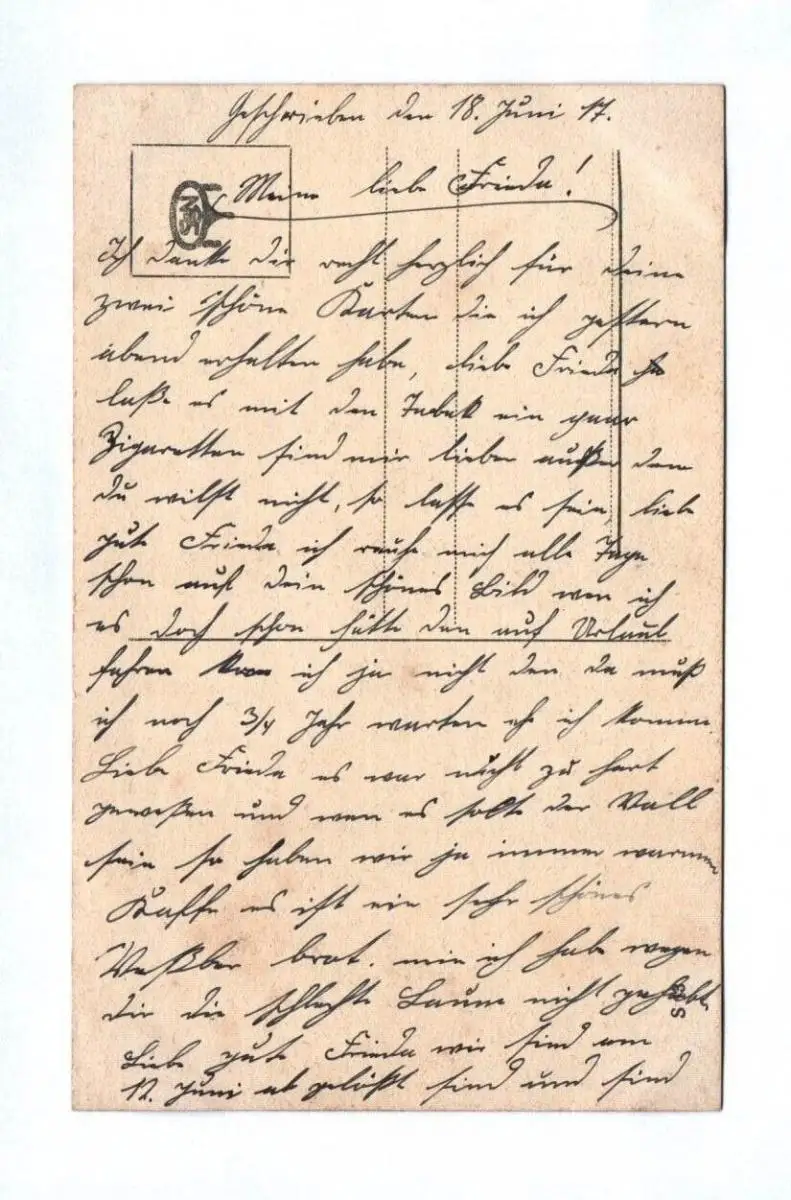 Geschrieben den 18. Juni 17.
Meine liebe Frieda!
Ich danke dir recht herzlich für deine
zwei schöne Karten die ich gestern
abend erhalten habe, liebe Frieda
laße es mit den Tabak ein paar
Zigaretten sind mir lieber außer dem
du wilst nicht, so lasse es sein, liebe
gute Frieda ich mich alle Tage
schon auf dein schönes Bild wen ich
es doch schon hätte den auf Urlaub
fahren kan ich ja nicht den da muß
ich noch 3/4 Jahr warten ehe ich komme
Liebe Frieda es war nicht zu hart
geweßen und wen es sollte der Vall
sein so haben wir ja immer warmen
Kaffe es ist ein sehr schönes
brot. nein ich habe wegen
dir die schlechte Laune nicht gehabt
Liebe gute Frieda wir sind am
12. Juni ab gelößt sind und sind